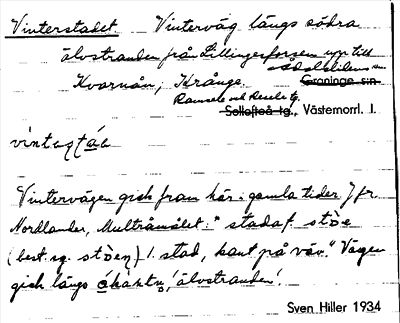 Vinterstadet Vinterväg längs södra
älvstranden från Lillingerforsen upp till
Kvarnån, Krånge Graninge s:n
Ramsele och Resele tg.
Sollefteå tg., Västernorrl. l.
Vintervägen gick fram här i gamla tider. Jfr
Nordlander, Multråmålet: "stadaf. stòe
(best. sg. stòen) f. stad, kant på väv." Vägen
gick längs älvstranden.
Sven Hiller 1934